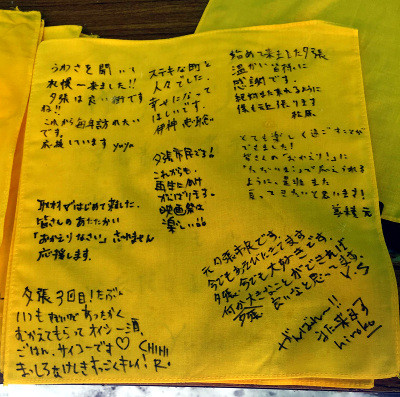 うわさを聞いて
札幌から来ました!!
夕張は良い街です
ね!!
これから毎年訪れたい
です。
応援しています yoyo
ステキな町と
人々でした。
幸せになって
ほしいです。
伊神
始めて来ました夕張
温かい皆様に
感謝です。
また来れるように
僕も
頑張ります
夕張市民です!
これからも
再生にむけ
がんばります。
映画祭は
楽しい!!
とても楽しく過ごすことが
できました!
皆さんの「おかえり!」に
「ただいま!」で応えられる
ように、是非また
戻って来たいと思います!
取材ではじめて来ました。
皆さんのあたたかい
「おかえりなさい」
応援します。
元夕張市民です。
今でもあそびにきてます。
夕張、今でも大好きです。
何か大きなことができれば
良いなと思ってます。
夕張 Y.S
夕張3回目!たぶん
いつもキレイであったかく
むかえてもらってオイシー酒、
ごはん、サイコーです♡ CHIHI
まっしろなけしきすっごくキレイ! R.
がんばれ〜!!
また来るヨ
hiroko